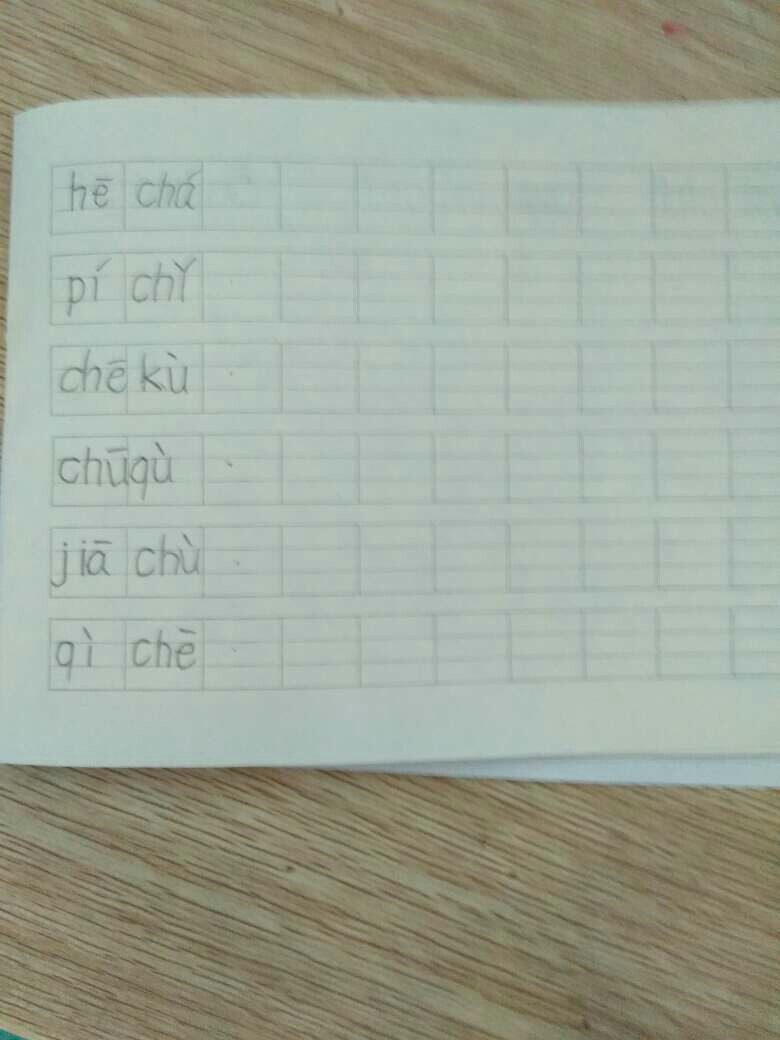 hē chá
pí chǐ
chē kù
chū qù
jiā chù
qì chē